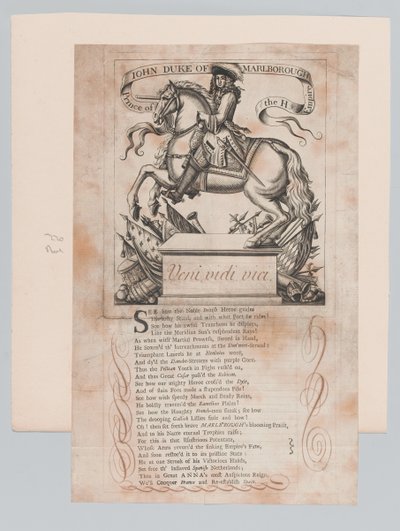 JOHN DUKE OF MARLBOROUGH
Prince of the H Empire
Veni vidi vici.
SEE how the Noble Hero guides
The Steed, and with what Port he rides!
See how his awful Truncheon he displays,
Like the Meridian Sun's resplendent Rays!
As when with Martial Prowess, Sword in Hand,
He Storm'd th' Intrenchments at the
Triumphant Laurels he at wore,
And dy'd the Danube-Streams with purple Gore.
Thus the Youth in Fight rush'd on,
And thus Great pass'd the Rubicon.
See how our mighty Heroe cross'd the
And of slain Foes made a stupendous Pile!
See how with speedy March and Ready Route,
He boldly travers'd the Plains!
See how the Haughty sunk; see how
The drooping Gallick Lillies fade and bow!
Oh! then set forth brave MARLBROUGH's blooming Praise,
And to his Name eternal Trophies raise;
For this is that Illustrious Potentate,
Whose Arms retriev'd the sinking Empire's Fate,
And soon restor'd it to its pristine State:
He at one Stroak of his Victorious Hands,
Set free th' Inslaved Spanish Netherlands;
Thus in Great ANNA's most Auspicious Reign,
We'll Conquer France and Re-establish